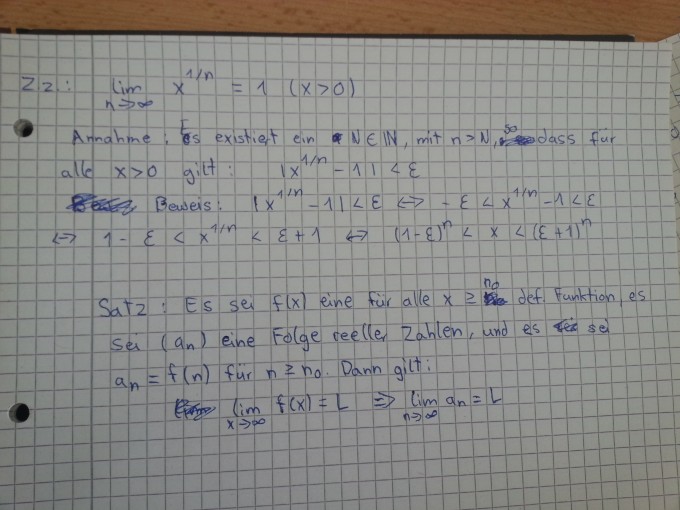 Zz.: lim_{n→∞} x^{1/n} = 1 (x>0)
Annahme: Es existiert ein N∈ℕ, mit n>N, so dass für
alle x>0 gilt: |x^{1/n} - 1| < ε
Beweis: |x^{1/n} - 1| < ε ⇔ -ε < x^{1/n} - 1 < ε
⇔ 1-ε < x^{1/n} < ε+1 ⇔ (1-ε)^n < x < (ε+1)^n
Satz: Es sei f(x) eine für alle x ≥ n₀ def. Funktion, es
sei (aₙ) eine Folge reeller Zahlen, und es sei
aₙ = f(n) für n ≥ n₀. Dann gilt:
lim_{x→∞} f(x) = L ⇒ lim_{n→∞} aₙ = L